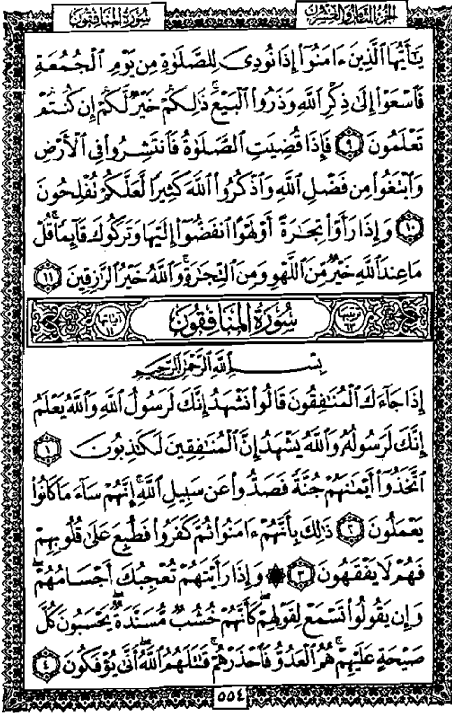 الجزء الثامن والعشرون
سورة المنافقون
يَٰٓأَيُّهَا ٱلَّذِينَ ءَامَنُوٓا۟ إِذَا نُودِىَ لِلصَّلَوٰةِ مِن يَوْمِ ٱلْجُمُعَةِ
فَٱسْعَوْا۟ إِلَىٰ ذِكْرِ ٱللَّهِ وَذَرُوا۟ ٱلْبَيْعَ ۚ ذَٰلِكُمْ خَيْرٌ لَّكُمْ إِن كُنتُمْ
تَعْلَمُونَ ٩ فَإِذَا قُضِيَتِ ٱلصَّلَوٰةُ فَٱنتَشِرُوا۟ فِى ٱلْأَرْضِ
وَٱبْتَغُوا۟ مِن فَضْلِ ٱللَّهِ وَٱذْكُرُوا۟ ٱللَّهَ كَثِيرًا لَّعَلَّكُمْ تُفْلِحُونَ
١٠ وَإِذَا رَأَوْا۟ تِجَٰرَةً أَوْ لَهْوًا ٱنفَضُّوٓا۟ إِلَيْهَا وَتَرَكُوكَ قَآئِمًا ۚ قُلْ
مَا عِندَ ٱللَّهِ خَيْرٌ مِّنَ ٱللَّهْوِ وَمِنَ ٱلتِّجَٰرَةِ ۚ وَٱللَّهُ خَيْرُ ٱلرَّٰزِقِينَ ١١
ترتيبها ٦٣ سورة المنافقون آياتها ١١
بِسْمِ ٱللَّهِ ٱلرَّحْمَٰنِ ٱلرَّحِيمِ
إِذَا جَآءَكَ ٱلْمُنَٰفِقُونَ قَالُوا۟ نَشْهَدُ إِنَّكَ لَرَسُولُ ٱللَّهِ ۗ وَٱللَّهُ يَعْلَمُ
إِنَّكَ لَرَسُولُهُۥ وَٱللَّهُ يَشْهَدُ إِنَّ ٱلْمُنَٰفِقِينَ لَكَٰذِبُونَ ١
ٱتَّخَذُوٓا۟ أَيْمَٰنَهُمْ جُنَّةً فَصَدُّوا۟ عَن سَبِيلِ ٱللَّهِ ۚ إِنَّهُمْ سَآءَ مَا كَانُوا۟
يَعْمَلُونَ ٢ ذَٰلِكَ بِأَنَّهُمْ ءَامَنُوا۟ ثُمَّ كَفَرُوا۟ فَطُبِعَ عَلَىٰ قُلُوبِهِمْ
فَهُمْ لَا يَفْقَهُونَ ٣ ۞ وَإِذَا رَأَيْتَهُمْ تُعْجِبُكَ أَجْسَامُهُمْ ۖ
وَإِن يَقُولُوا۟ تَسْمَعْ لِقَوْلِهِمْ ۖ كَأَنَّهُمْ خُشُبٌ مُّسَنَّدَةٌ ۖ يَحْسَبُونَ كُلَّ
صَيْحَةٍ عَلَيْهِمْ ۚ هُمُ ٱلْعَدُوُّ فَٱحْذَرْهُمْ ۚ قَٰتَلَهُمُ ٱللَّهُ ۖ أَنَّىٰ يُؤْفَكُونَ ٤
٥٥٤